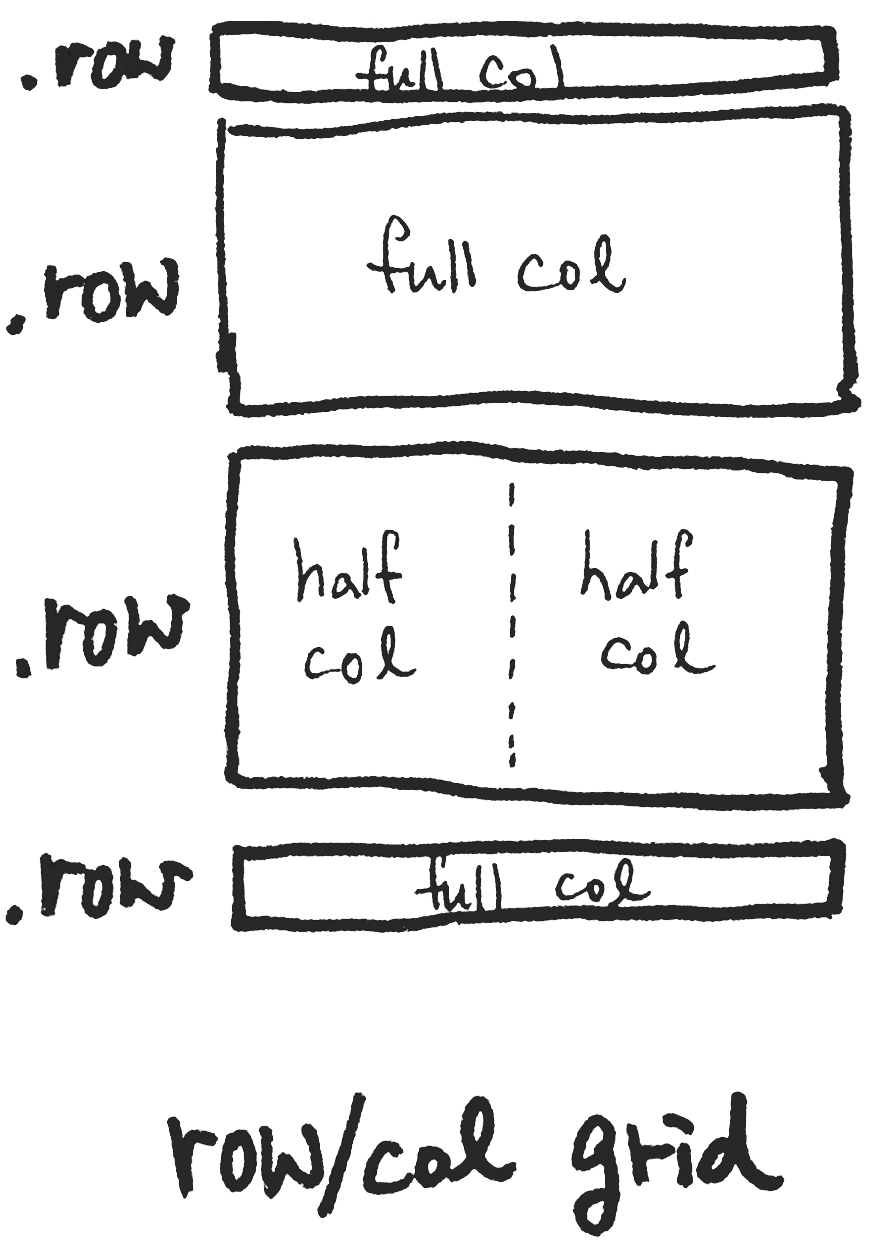 .row
full col
.row
full col
.row
half
col
half
col
.row
full col
row/col grid